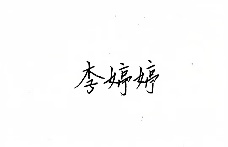 李婷婷